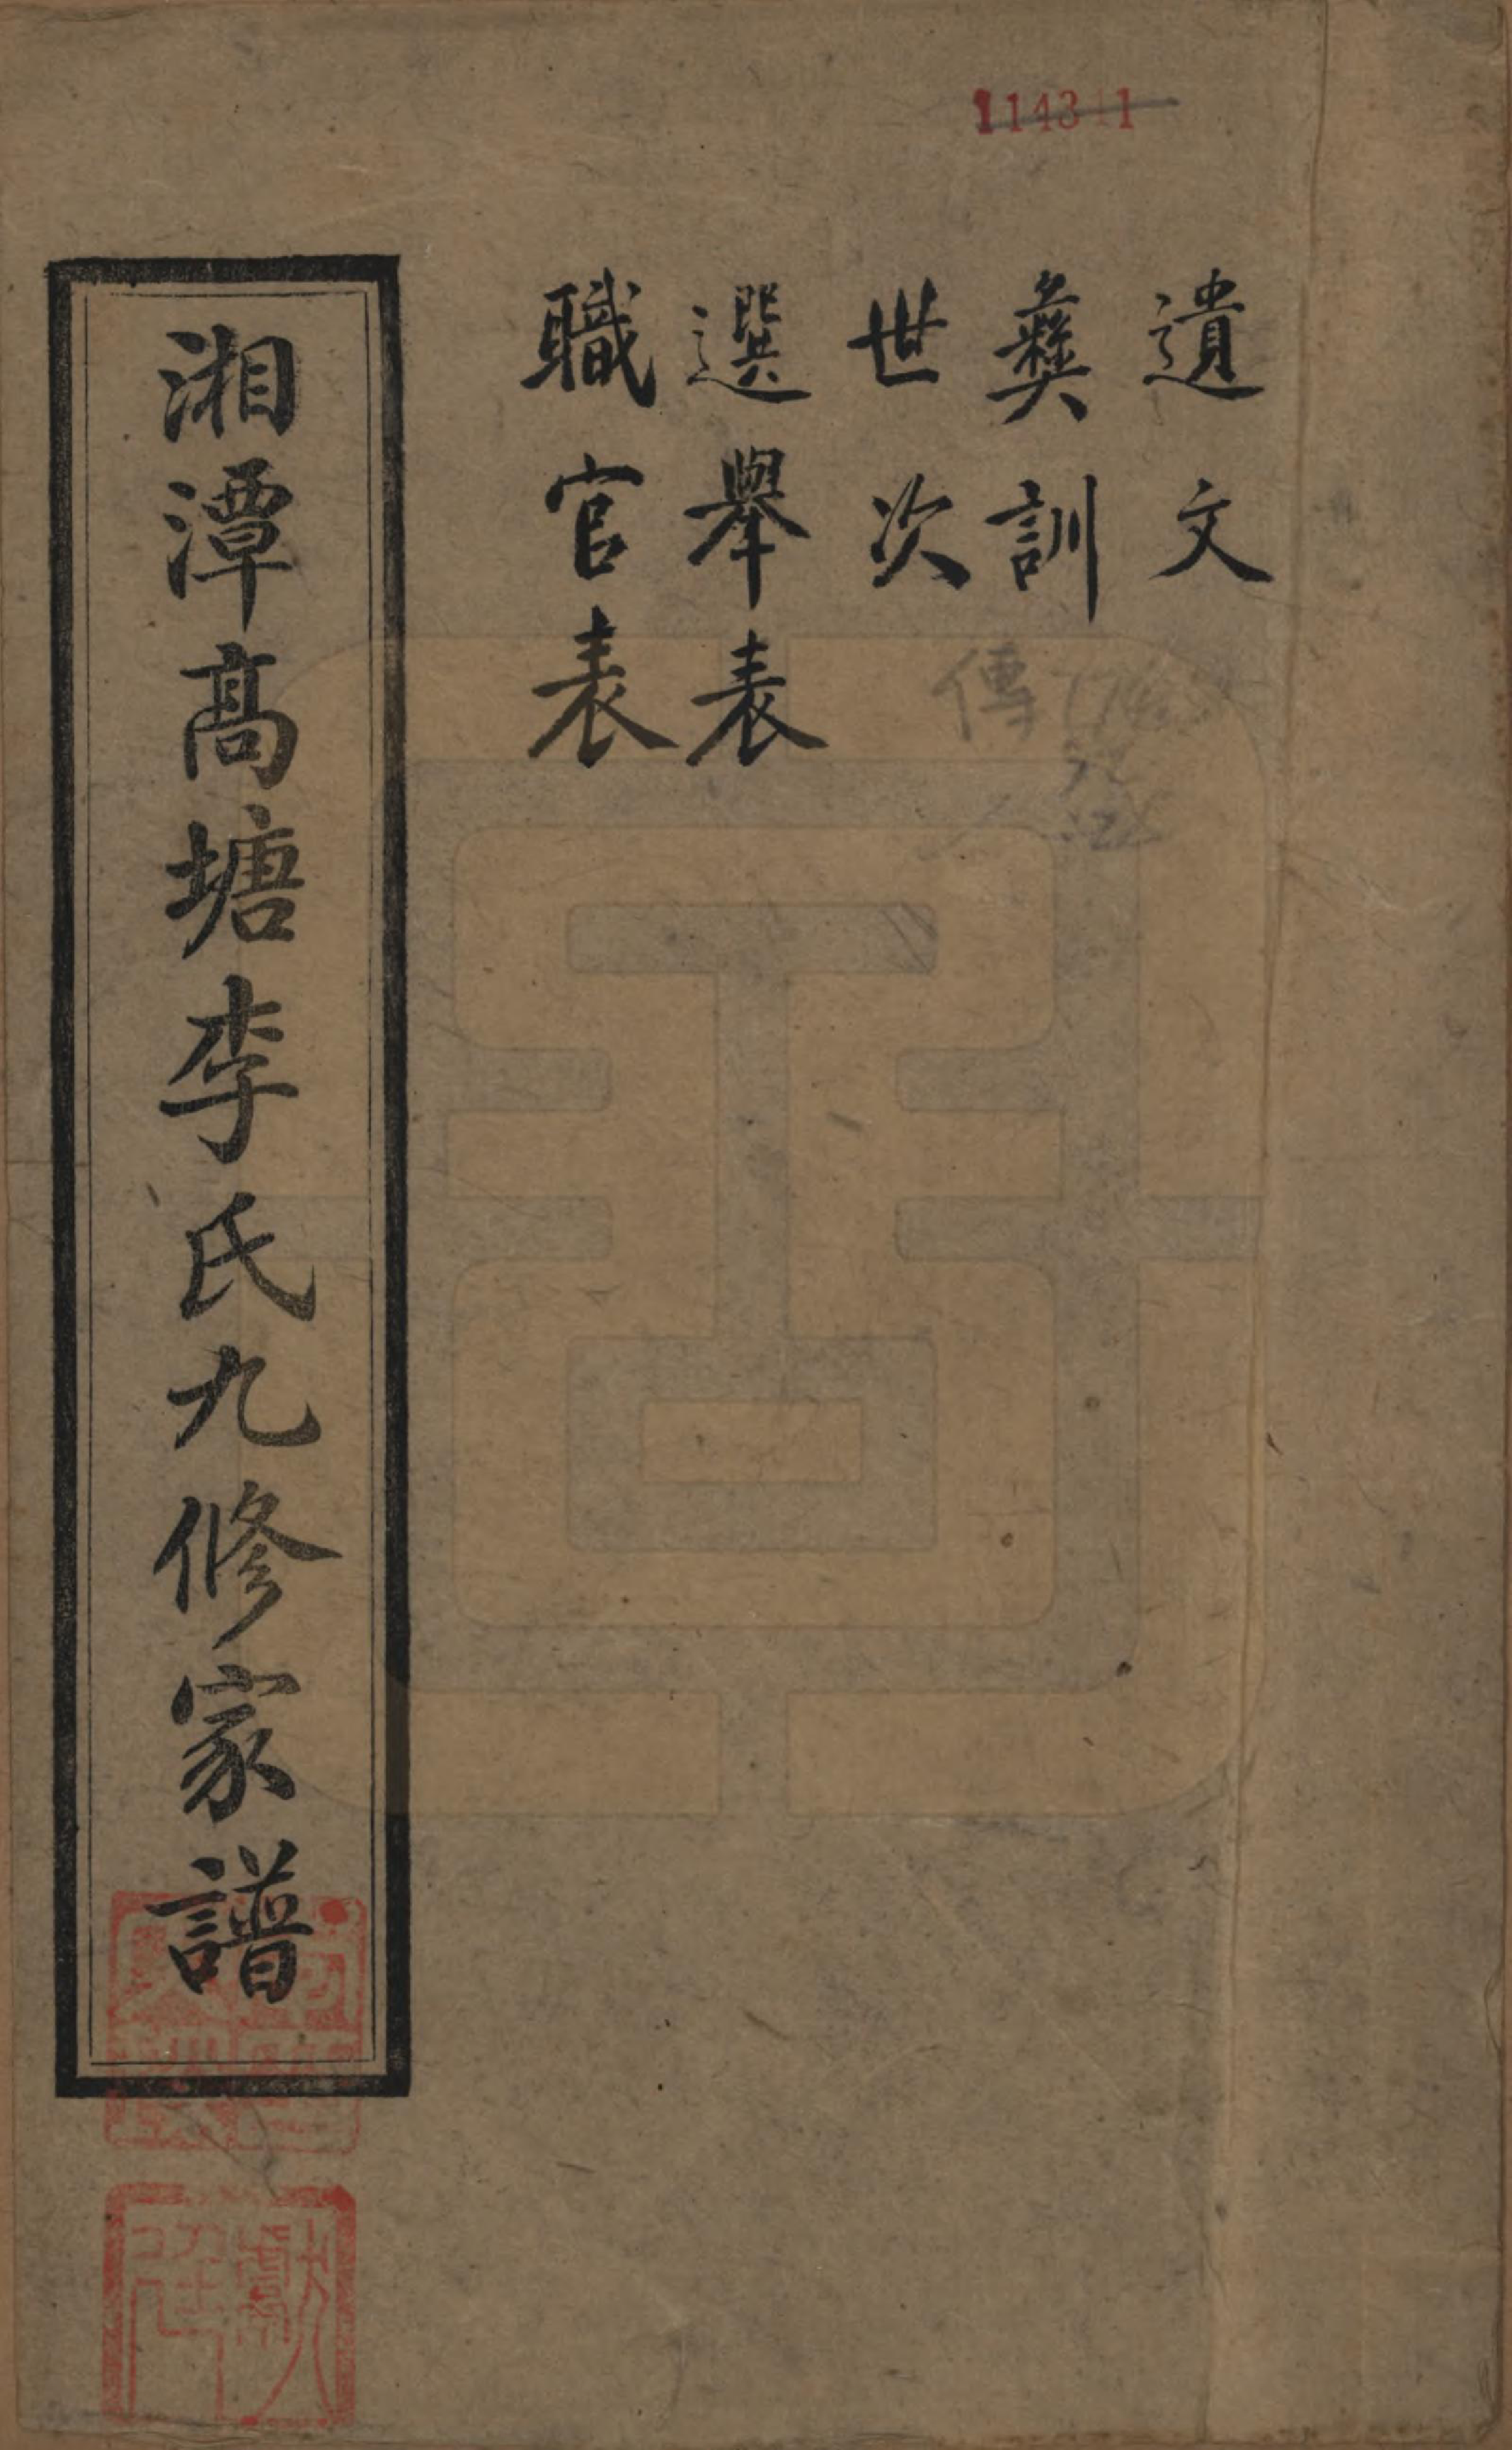 114311
遺文
彝訓
世次
選舉表
職官表
傳
湘潭高塘李氏九修家譜